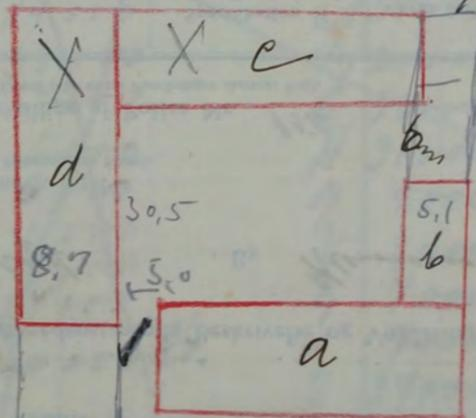 X X c
d
30,5
5,1
b
8,7
5,0
a